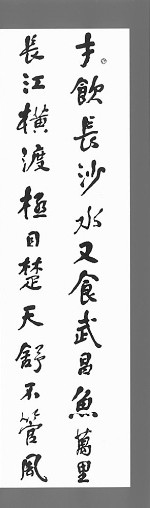 才飲長沙水又食武昌魚萬里
長江橫渡極目楚天舒不管風